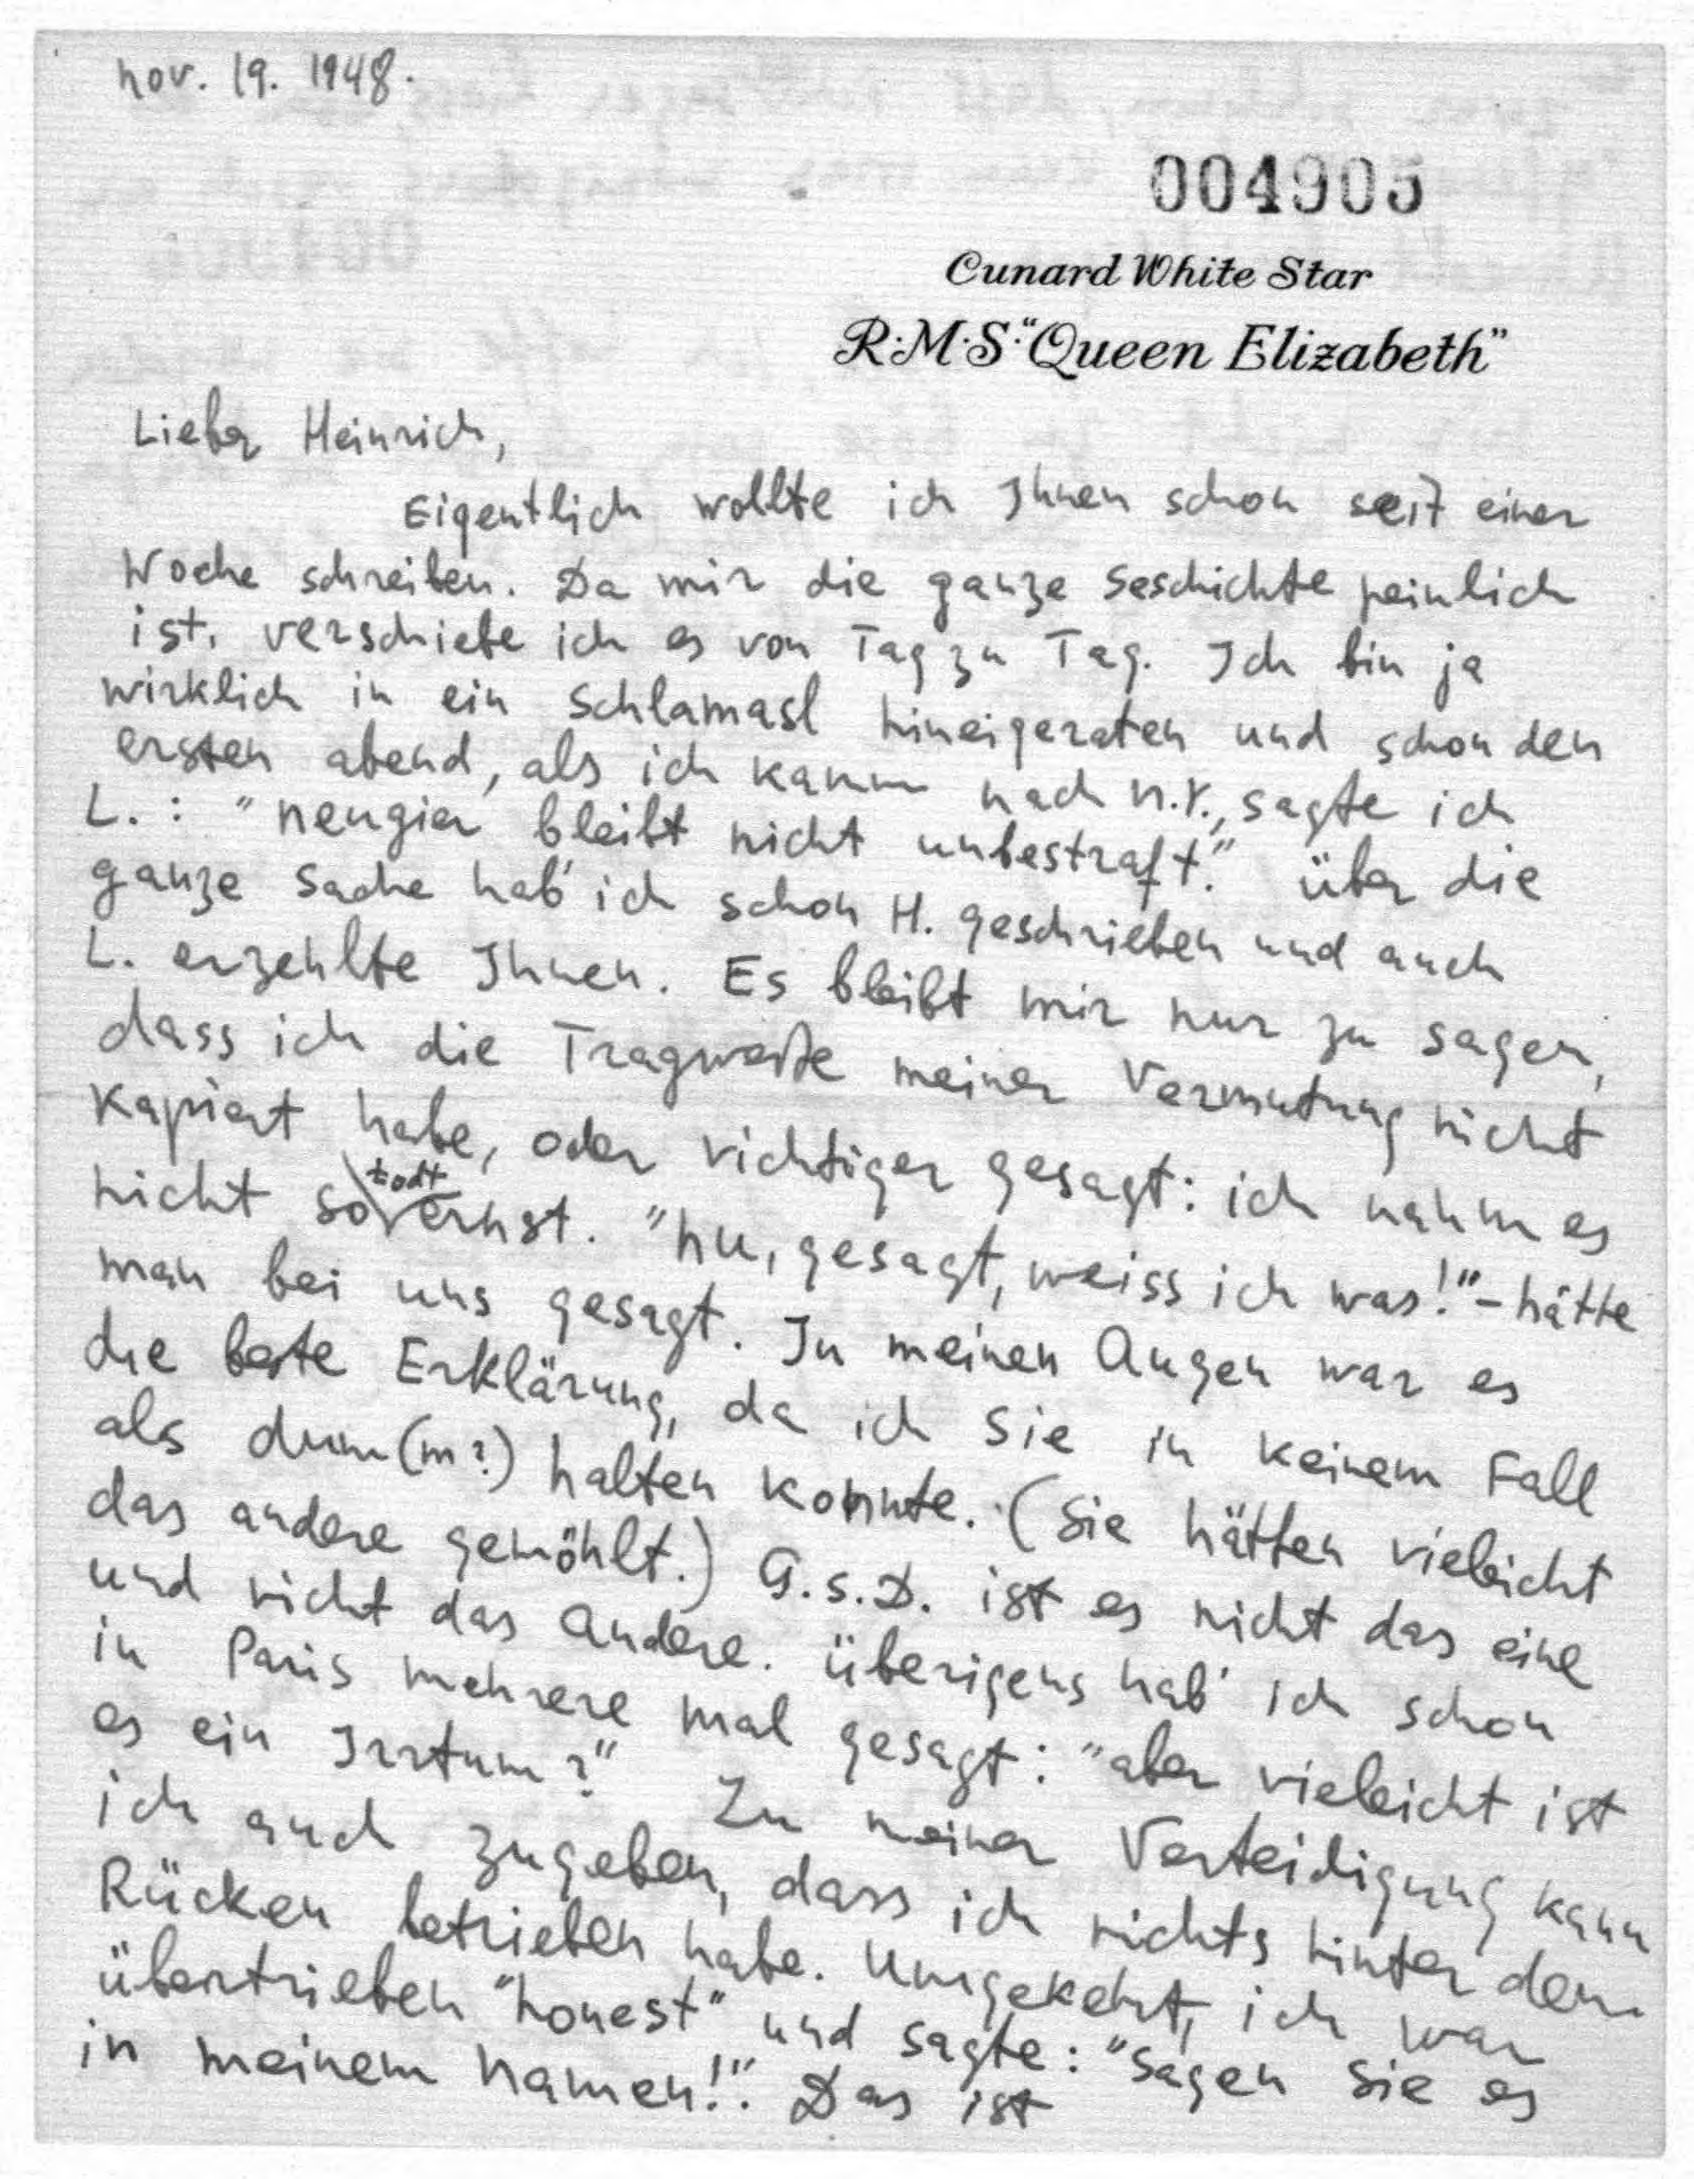 Nov. 19. 1948.
004905
Cunard White Star
R·M·S· "Queen Elizabeth"
Lieber Heinrich,
Eigentlich wollte ich Ihnen schon seit einer
Woche schreiben. Da mir die ganze Geschichte peinlich
ist, verschiebe ich es von Tag zu Tag. Ich bin ja
wirklich in ein Schlamasl hineigeraten und schon den
ersten abend, als ich kamm nach N.Y., sagte ich
L.: "Neugier bleibt nicht unbestraft." Über die
ganze Sache hab' ich schon H. geschrieben und auch
L. erzehlte Ihnen. Es bleibt mir nur zu sagen,
dass ich die Tragweite meiner Vermutung nicht
kapiert habe, oder richtiger gesagt: ich nahm es
nicht so todt ernst. "Nu, gesagt, weiss ich was!" – hätte
man bei uns gesagt. In meinen Augen war es
die beste Erklärung, da ich Sie in keinem Fall
als dum(m?) halten konnte. (Sie hätten vieleicht
das andere gewöhlt.) G.s.D. ist es nicht das eine
und nicht das andere. Überigens hab' ich schon
in Paris mehrere mal gesagt: "aber vieleicht ist
es ein Irrtum?" Zu meiner Verteidigung kann
ich auch zugeben, dass ich nichts hinter dem
Rücken betrieben habe. Umgekehrt, ich war
übertrieben "honest" und sagte: "Sagen Sie es
in meinem Namen!". Das ist